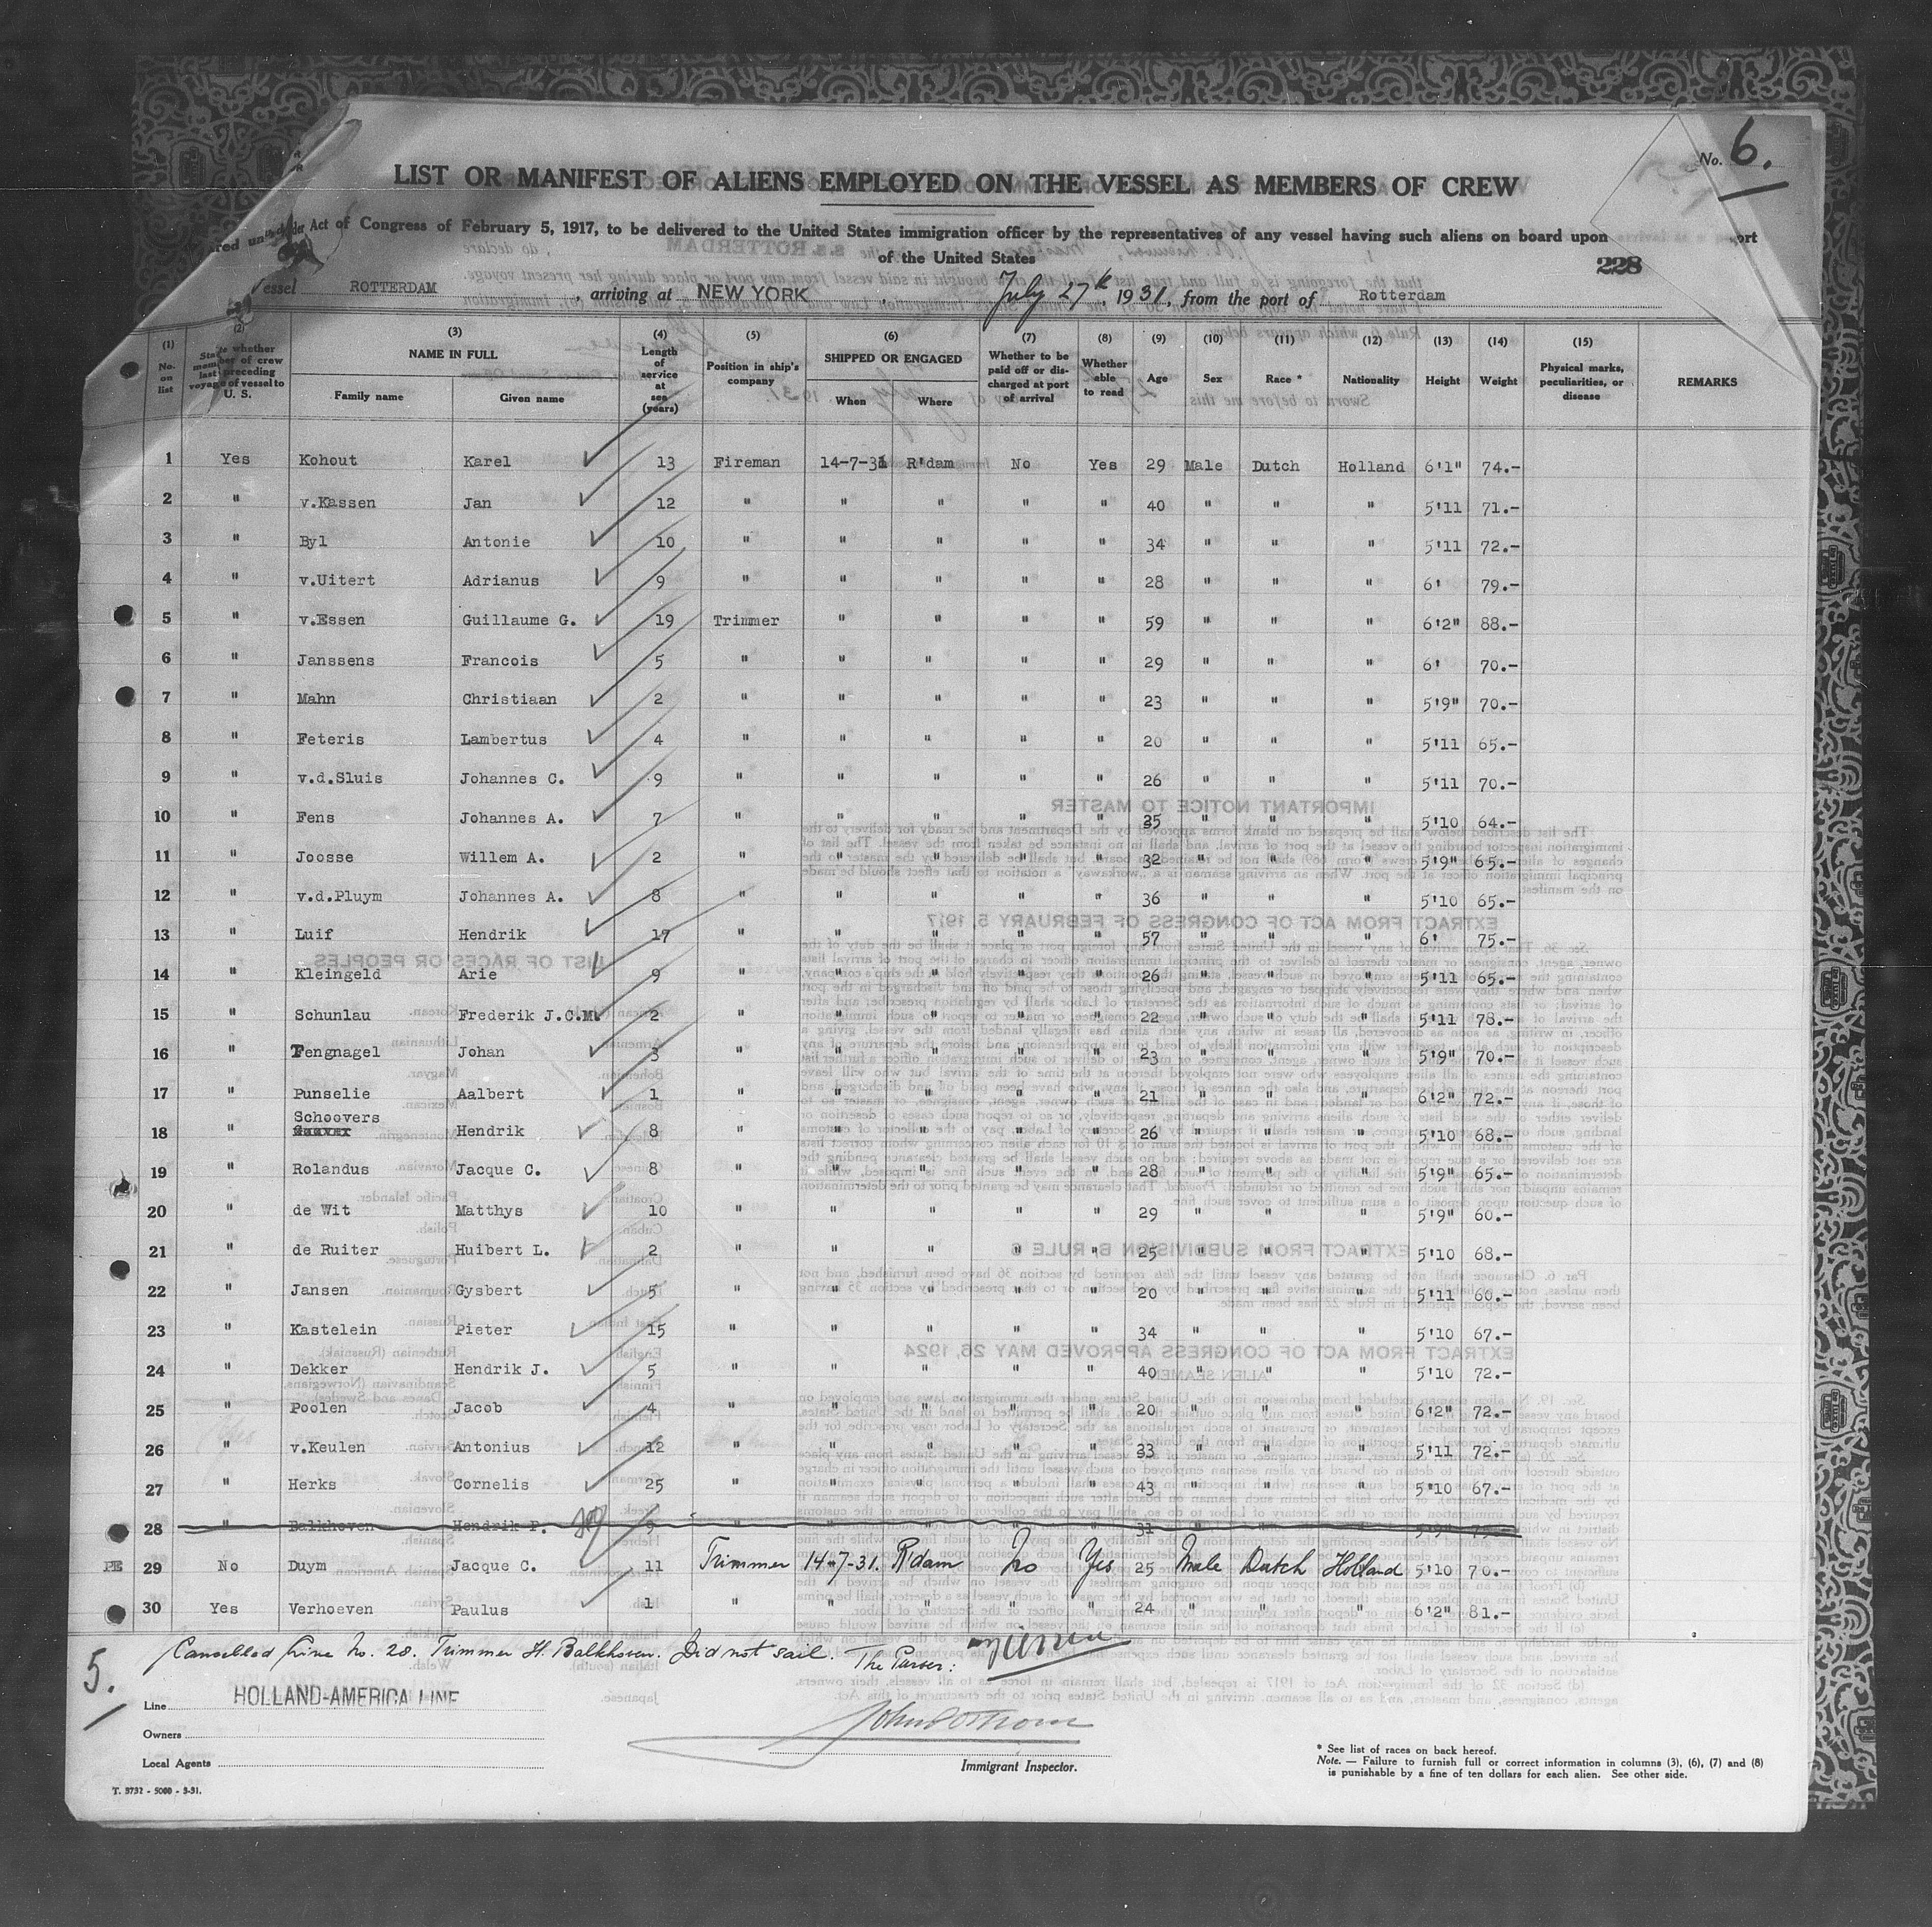 No. 6.
LIST OR MANIFEST OF ALIENS EMPLOYED ON THE VESSEL AS MEMBERS OF CREW
Act of Congress of February 5, 1917, to be delivered to the United States immigration officer by the representatives of any vessel having such aliens on board upon
of the United States
228
ROTTERDAM, arriving at NEW YORK, July 27th, 1931, from the port of Rotterdam
(1) No. on list (2) State whether member of crew last preceding voyage of vessel to U. S. (3) NAME IN FULL Family name Given name (4) Length of service at sea (years) (5) Position in ship's company (6) SHIPPED OR ENGAGED When Where (7) Whether to be paid off or discharged at port of arrival (8) Whether able to read (9) Age (10) Sex (11) Race * (12) Nationality (13) Height (14) Weight (15) Physical marks, peculiarities, or disease REMARKS
1 Yes Kohout Karel 13 Fireman 14-7-31 R'dam No Yes 29 Male Dutch Holland 6'1" 74.-
2 " v.Kassen Jan 12 " " " " " 40 " " " 5'11 71.-
3 " Byl Antonie 10 " " " " " 34 " " " 5'11 72.-
4 " v.Uitert Adrianus 9 " " " " " 28 " " " 6' 79.-
5 " v.Essen Guillaume G. 19 Trimmer " " " " 59 " " " 6'2" 88.-
6 " Janssens Francois 5 " " " " " 29 " " " 6' 70.-
7 " Mahn Christiaan 2 " " " " " 23 " " " 5'9" 70.-
8 " Feteris Lambertus 4 " " " " " 20 " " " 5'11 65.-
9 " v.d.Sluis Johannes C. 9 " " " " " 26 " " " 5'11 70.-
10 " Fens Johannes A. 7 " " " " " 35 " " " 5'10 64.-
11 " Joosse Willem A. 2 " " " " " 32 " " " 5'9" 65.-
12 " v.d.Pluym Johannes A. 8 " " " " " 36 " " " 5'10 65.-
13 " Luif Hendrik 17 " " " " " 57 " " " 6' 75.-
14 " Kleingeld Arie 9 " " " " " 26 " " " 5'11 65.-
15 " Schunlau Frederik J.C.M. 2 " " " " " 22 " " " 5'11 78.-
16 " Tengnagel Johan 3 " " " " " 23 " " " 5'9" 70.-
17 " Punselie Aalbert 1 " " " " " 21 " " " 6'2" 72.-
18 " Schoovers Hendrik 8 " " " " " 26 " " " 5'10 68.-
19 " Rolandus Jacque C. 8 " " " " " 28 " " " 5'9" 65.-
20 " de Wit Matthys 10 " " " " " 29 " " " 5'9" 60.-
21 " de Ruiter Huibert L. 2 " " " " " 25 " " " 5'10 68.-
22 " Jansen Gysbert 5 " " " " " 20 " " " 5'11 60.-
23 " Kastelein Pieter 15 " " " " " 34 " " " 5'10 67.-
24 " Dekker Hendrik J. 5 " " " " " 40 " " " 5'10 72.-
25 " Poolen Jacob 4 " " " " " 20 " " " 6'2" 72.-
26 " v.Keulen Antonius 12 " " " " " 33 " " " 5'11 72.-
27 " Herks Cornelis 25 " " " " " 43 " " " 5'10 67.-
28 " Balkhoven Hendrik P. 9 " " " " " 31 " " " 5'9"
PE 29 No Duym Jacque C. 11 Trimmer 14-7-31. R'dam No Yes 25 Male Dutch Holland 5'10 70.-
30 Yes Verhoeven Paulus 1 " " " " " 24 " " " 6'2" 81.-
Cancelled line No. 28. Trimmer H. Balkhoven. Did not sail. The Purser:
5.
Line HOLLAND-AMERICA LINE
Owners
Local Agents
Immigrant Inspector.
* See list of races on back hereof.
Note. — Failure to furnish full or correct information in columns (3), (6), (7) and (8)
is punishable by a fine of ten dollars for each alien. See other side.
T. 3732 - 5000 - 3-31.